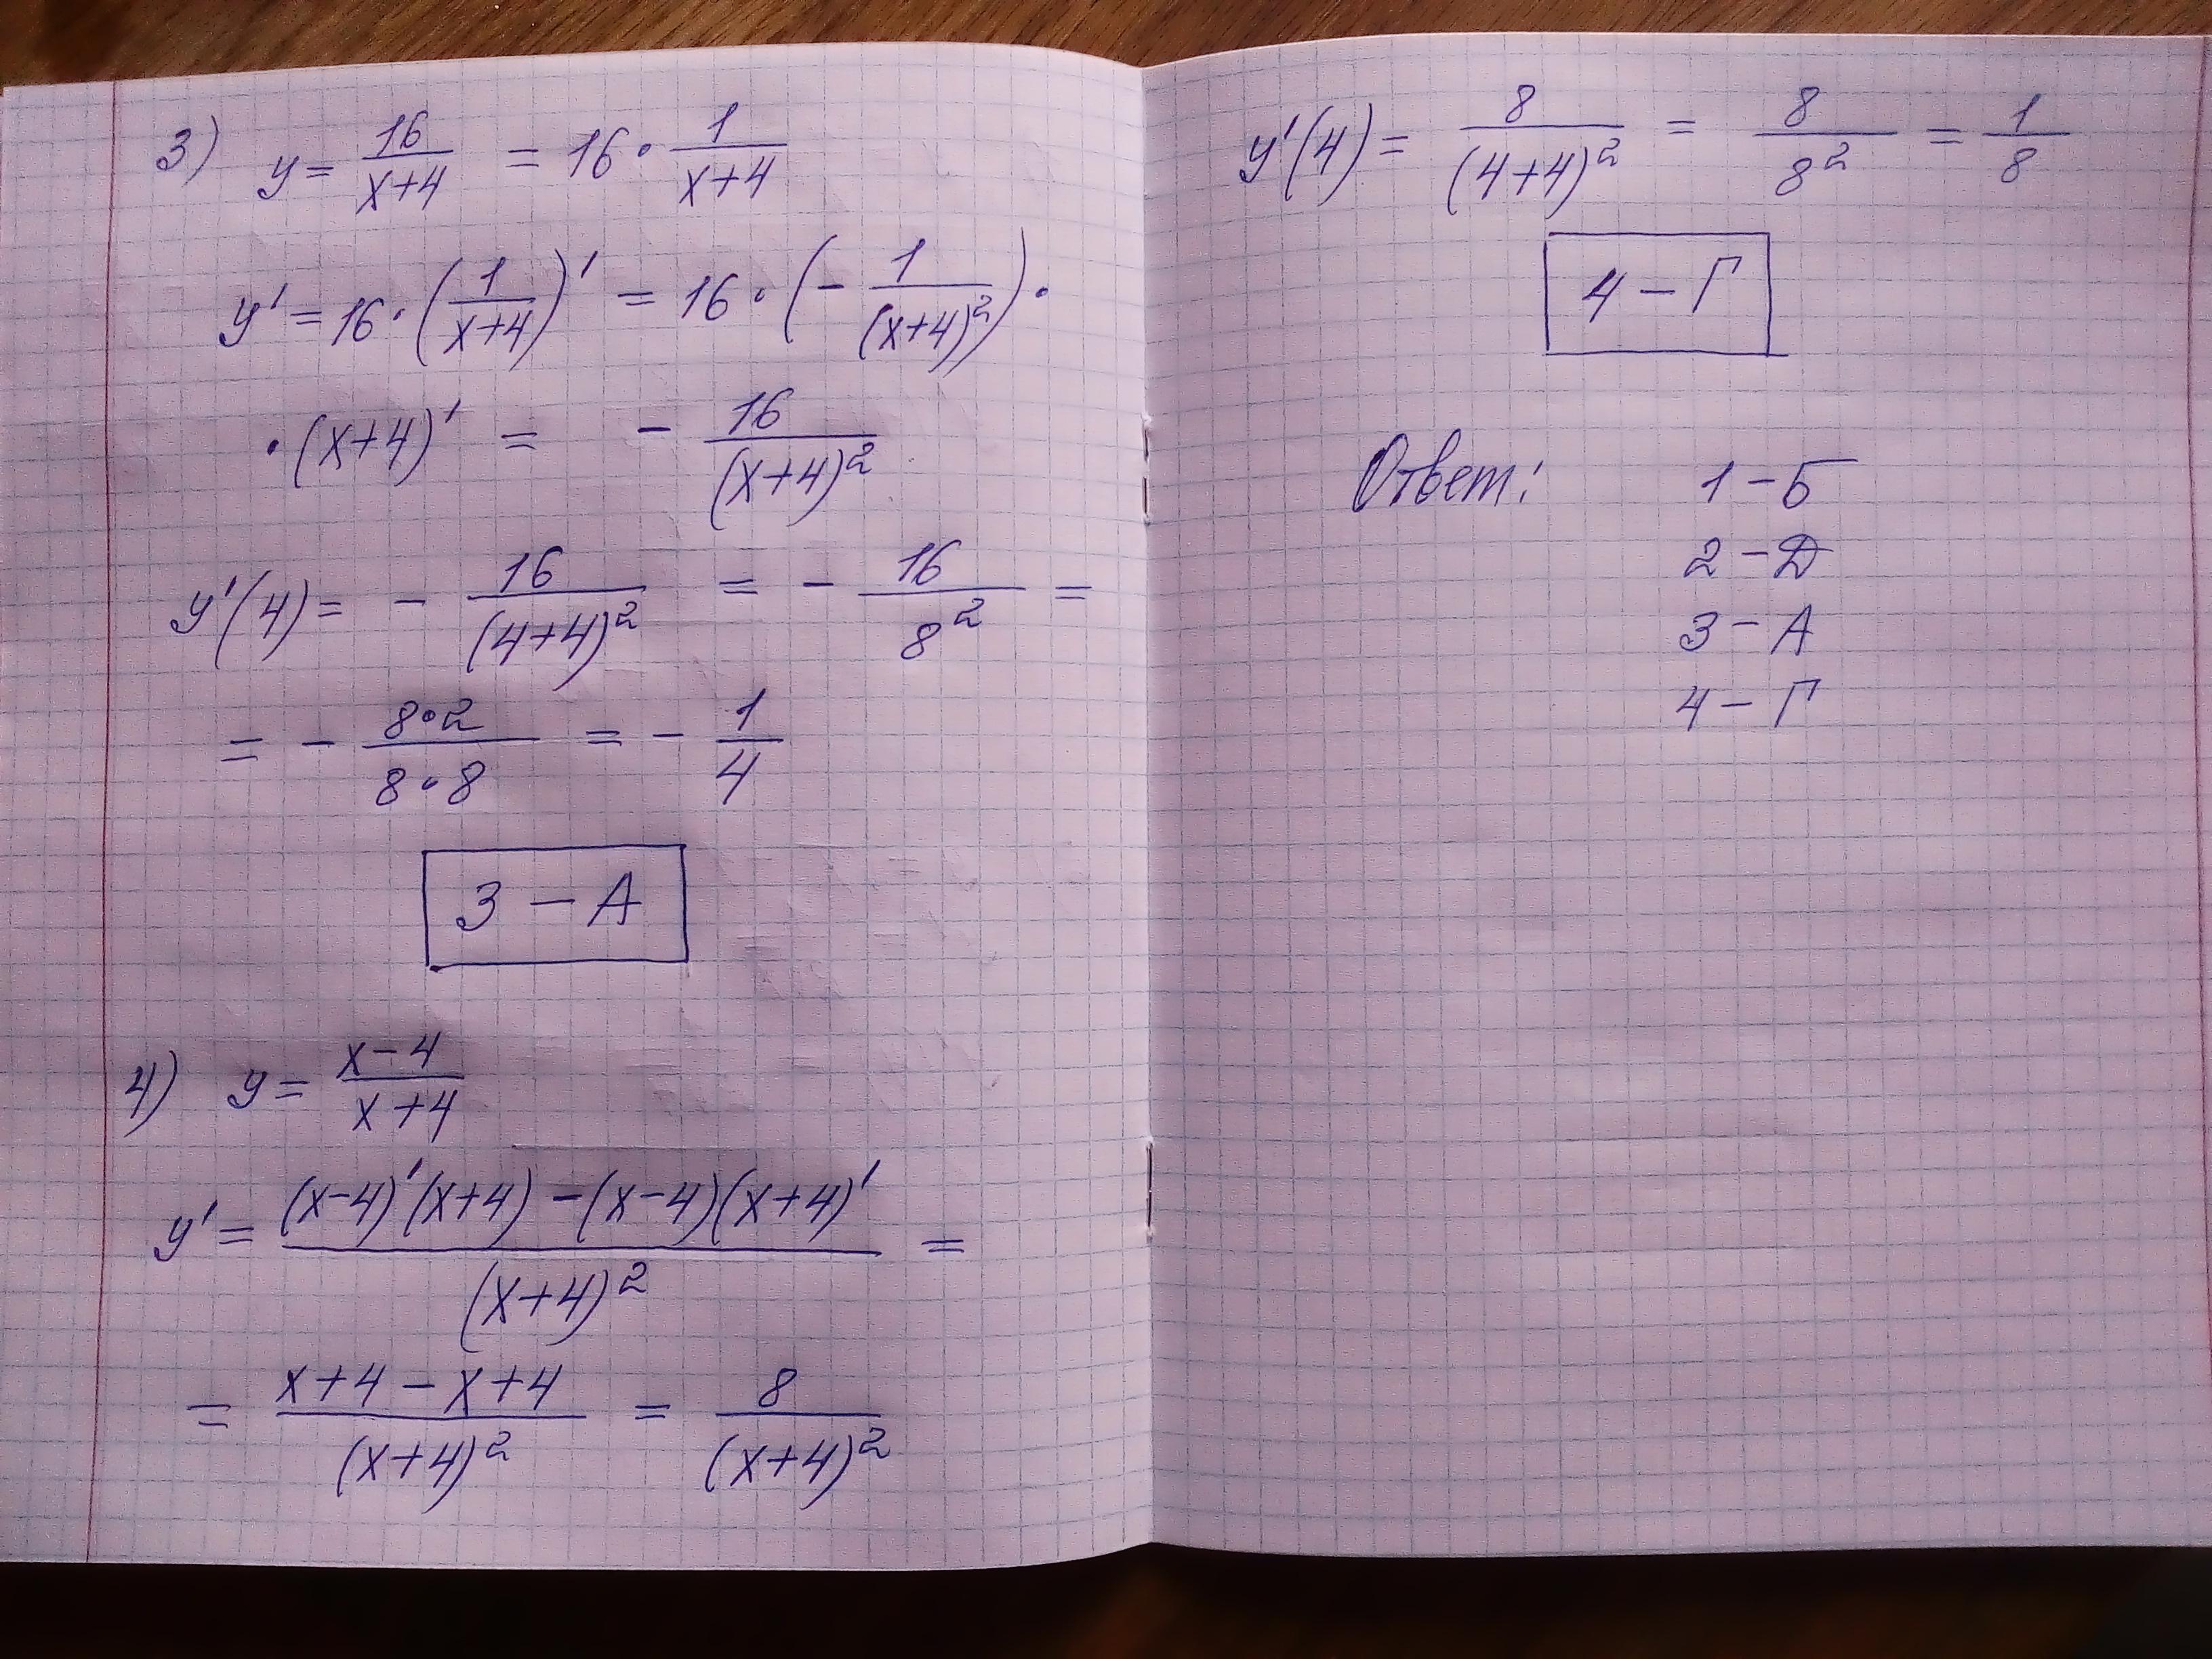 3) y = 16/(x+4) = 16 · 1/(x+4)
y' = 16 · (1/(x+4))' = 16 · (- 1/(x+4)²) ·
· (x+4)' = - 16/(x+4)²
y'(4) = - 16/(4+4)² = - 16/8² =
= - 8·2/8·8 = - 1/4
3 – А
4) y = (x-4)/(x+4)
y' = ((x-4)'(x+4) - (x-4)(x+4)')/(x+4)² =
= (x+4-x+4)/(x+4)² = 8/(x+4)²
y'(4) = 8/(4+4)² = 8/8² = 1/8
4 – Г
Ответ: 1 – Б
2 – Д
3 – А
4 – Г